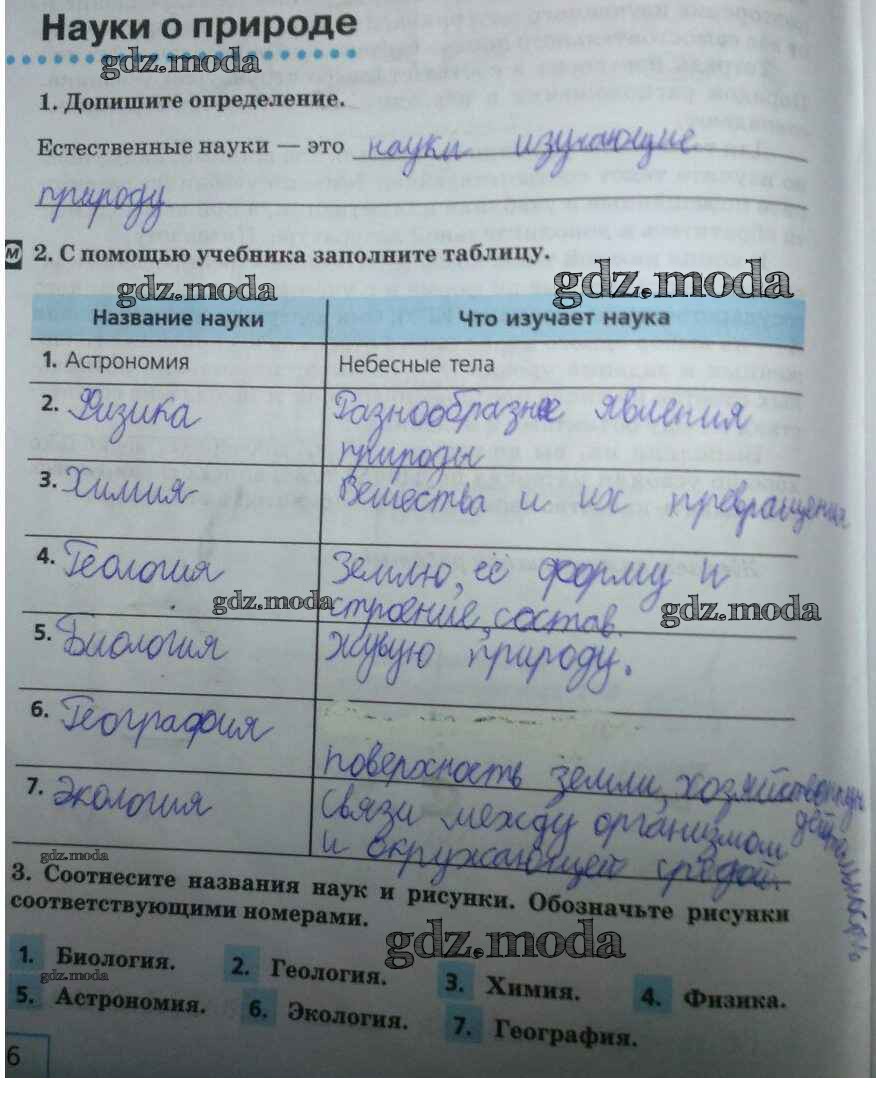 Науки о природе
gdz.moda
1. Допишите определение.
Естественные науки — это науки изучающие
природу
м 2. С помощью учебника заполните таблицу.
gdz.moda gdz.moda
Название науки Что изучает наука
1. Астрономия Небесные тела
2. Физика Разнообразне явления
природы
3. Химия Вещества и их превращения
4. Геология Землю, её форму и
gdz.moda строение, состав. gdz.moda
5. Биология живую природу.
6. География
поверхность земли, хозяйственную
деятельность
7. Экология связи между организмом
и окружающей средой.
gdz.moda
3. Соотнесите названия наук и рисунки. Обозначьте рисунки
соответствующими номерами.
gdz.moda
1. Биология. 2. Геология. 3. Химия. 4. Физика.
gdz.moda
5. Астрономия. 6. Экология. 7. География.
6